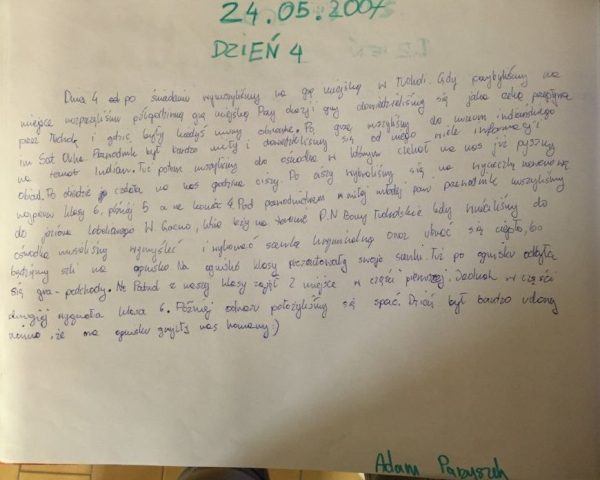 24.05.2007
DZIEŃ 4
Dnia 4 po śniadaniu wyruszyliśmy na grę miejską w Tucholi. Gdy przybyliśmy na
miejsce rozpoczęliśmy półgodzinną grę miejską. Przy okazji gry dowiedzieliśmy się jaka rzeka przepływa
przez Tucholę i gdzie były kiedyś mury obronne. Po grze ruszyliśmy do muzeum indiańskiego
im Sat Okha. Przewodnik był bardzo miły i dowiedzieliśmy się od niego wiele informacji
na temat Indian. Tuż potem ruszyliśmy do ośrodka w którym czekał na nas już pyszny
obiad. Po obiedzie czekała na nas godzina ciszy. Po ciszy wybraliśmy się na wycieczkę rowerową
najpierw klasy 6, później 5 a na koniec 4. Pod przewodnictwem miłej młodej pani przewodnik ruszyliśmy
do jeziora w Gacno, które leży na terenie P.N Bory Tucholskie. Gdy wróciliśmy do
ośrodka musieliśmy wymyśleć i wykonać scenkę kryminalną oraz ubrać się ciepło, bo
będziemy szli na ognisko. Na ognisku klasy prezentowały swoje scenki. Tuż po ognisku odbyła
się gra - podchody. Patrol z naszej klasy zajął 2 miejsce w części pierwszej. Jednak w części
drugiej wygrała klasa 6. Później odrazu położyliśmy się spać. Dzień był bardzo udany
mimo, że na ognisku zjadły nas komary :)
Adam